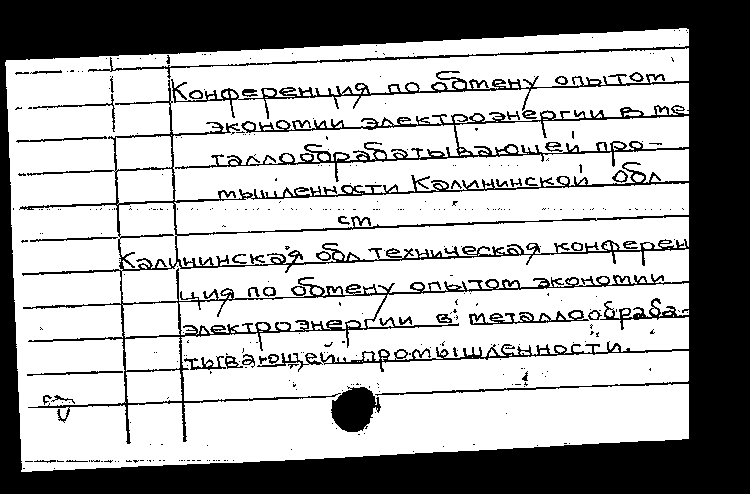 Конференция по обмену опытом
экономии электроэнергии в ме-
таллообрабатывающей про-
мышленности Калининской обл
см.
Калининская обл. техническая конферен
ция по обмену опытом экономии
электроэнергии в металлообраба-
тывающей промышленности.